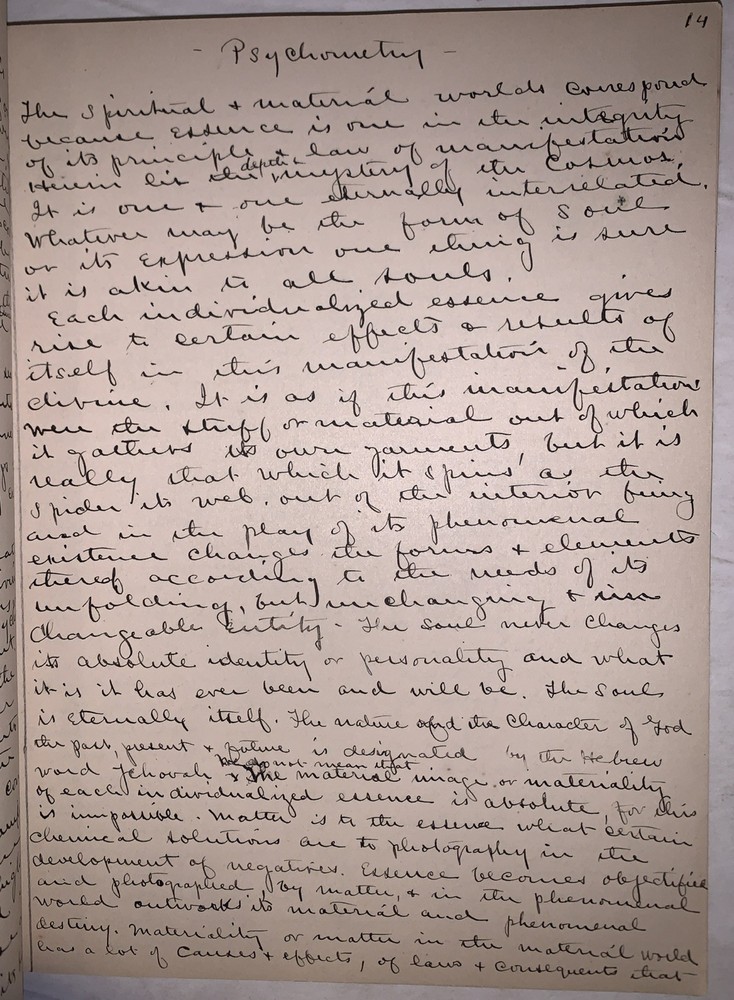 14
- Psychometry -
The Spiritual & material worlds correspond
because essence is one in the integrity
of its principle & law of manifestation
Herein lies the depth & mystery of the Cosmos.
It is one & one eternally interrelated.
Whatever may be the form of Soul
or its Expression one thing is sure
it is akin to all souls.
Each individualized essence gives
rise to certain effects & results of
itself in this manifestation of the
divine. It is as if this manifestation
were the stuff or material out of which
it gathers its own garments, but it is
really that which it spins as the
Spider its web. out of the interior being
and in the play of its phenomenal
existence changes the forms & elements
thereof according to the needs of its
unfolding, but unchanging &
Changeable Entity - The Soul never changes
its absolute identity or personality and what
it is it has ever been and will be. The Soul
is Eternally itself. The nature and the Character of God
the past, present & future is designated by the Hebrew
word Jehovah & We do not mean that The material image or materiality
of each individualized essence is absolute, for this
is impossible. Matter is to the essence what certain
chemical solutions are to photography in the
development of negatives. Essence becomes objectified
and photographed, by matter, & in the phenomenal
world outworks its material and phenomenal
destiny. Materiality or matter in the material world
has a lot of causes & effects, of laws & consequents that